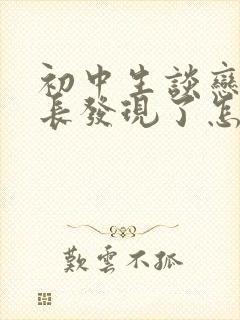 初中生談戀
長發現了怎
歎雲不孤